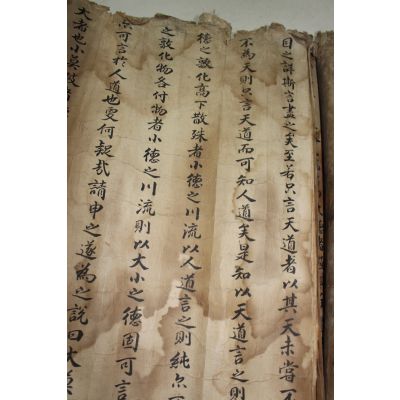 目之詳斯言盡之矣至若只言天道者以其天未嘗不
不為天則只言天道而可知人道矣是知以天道言之則
德之敦化高下散殊者小德之川流以人道言之則純亦不
之敦化物各付物者小德之川流則以大小之德固可言
亦可言於人道也夏何疑哉請申之遂為之說曰大莫
大者也小莫